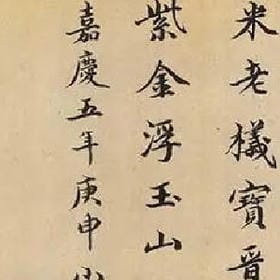 米老檥寶晉
紫金浮玉山
嘉慶五年庚申